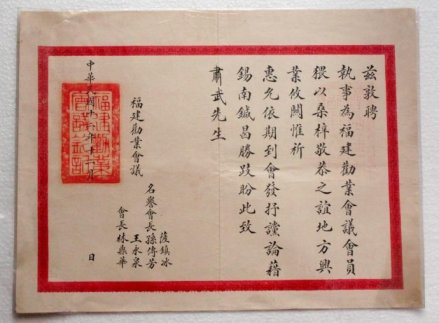 茲敦聘
執事為福建勸業會議會員
猥以桑梓敬恭之誼地方興
業攸關惟祈
惠允依期到會發抒讜論藉
錫南鍼曷勝跂盼此致
肅武先生
福建勸業會議
薩鎮冰
名譽會長孫傳芳
王永泉
會長林華
中華民國日